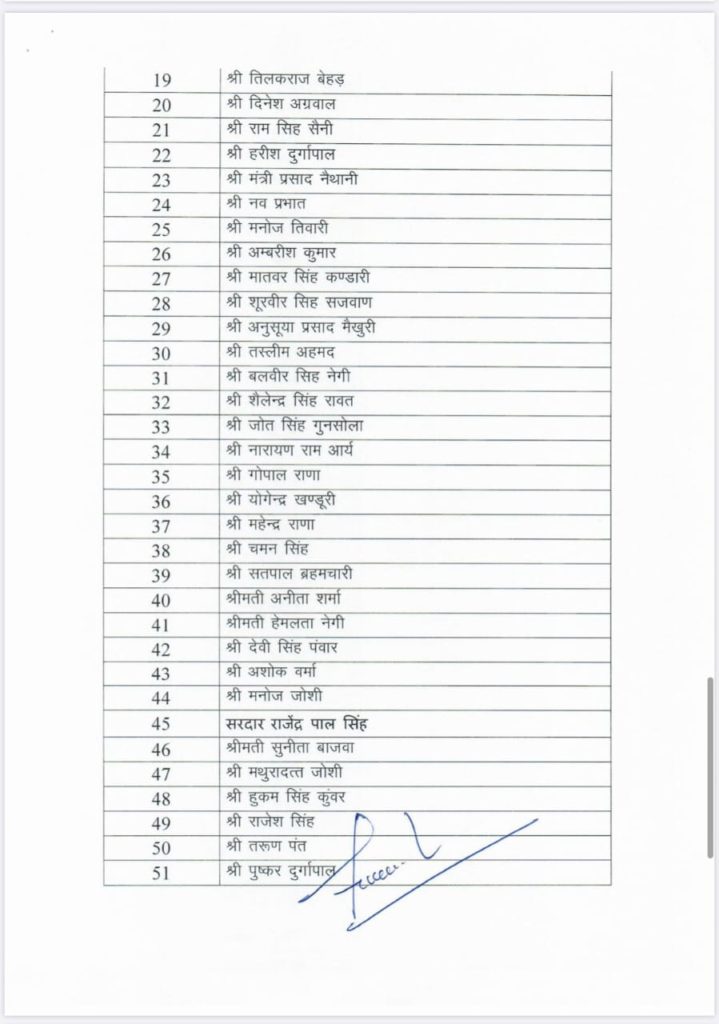 19 श्री तिलकराज बेहड़
20 श्री दिनेश अग्रवाल
21 श्री राम सिह सैनी
22 श्री हरीश दुर्गापाल
23 श्री मंत्री प्रसाद नैथानी
24 श्री नव प्रभात
25 श्री मनोज तिवारी
26 श्री अम्बरीश कुमार
27 श्री मातवर सिंह कण्डारी
28 श्री शूरवीर सिह सजवाण
29 श्री अनुसूया प्रसाद मैखुरी
30 श्री तस्लीम अहमद
31 श्री बलवीर सिह नेगी
32 श्री शैलेन्द्र सिंह रावत
33 श्री जोत सिंह गुनसोला
34 श्री नारायण राम आर्य
35 श्री गोपाल राणा
36 श्री योगेन्द्र खण्डूरी
37 श्री महेन्द्र राणा
38 श्री चमन सिंह
39 श्री सतपाल ब्रहमचारी
40 श्रीमती अनीता शर्मा
41 श्रीमती हेमलता नेगी
42 श्री देवी सिंह पंवार
43 श्री अशोक वर्मा
44 श्री मनोज जोशी
45 सरदार राजेंद्र पाल सिंह
46 श्रीमती सुनीता बाजवा
47 श्री मथुरादत्त जोशी
48 श्री हुकम सिंह कुंवर
49 श्री राजेश सिंह
50 श्री तरूण पंत
51 श्री पुष्कर दुर्गापाल